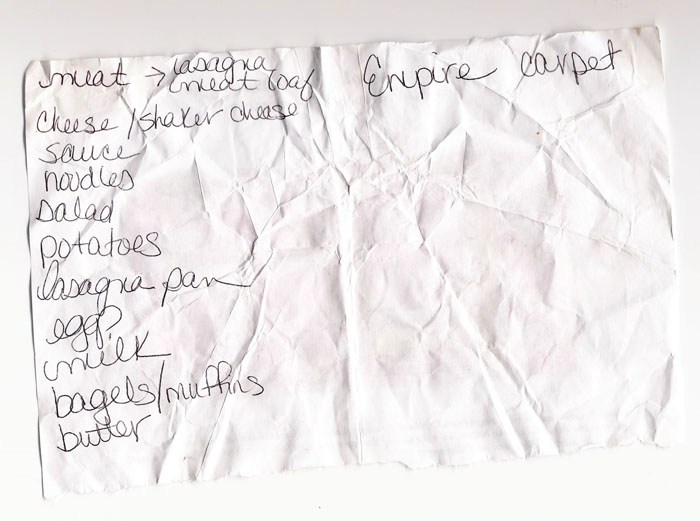 meat → lasagna
meat loaf
Empire carpet
cheese / shaker cheese
sauce
noodles
salad
potatoes
lasagna pan
egg?
milk
bagels/muffins
butter